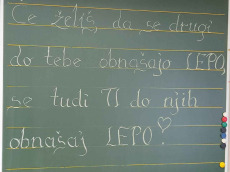 Če želiš, da se drugi
do tebe obnašajo LEPO,
se tudi TI do njih
obnašaj LEPO!